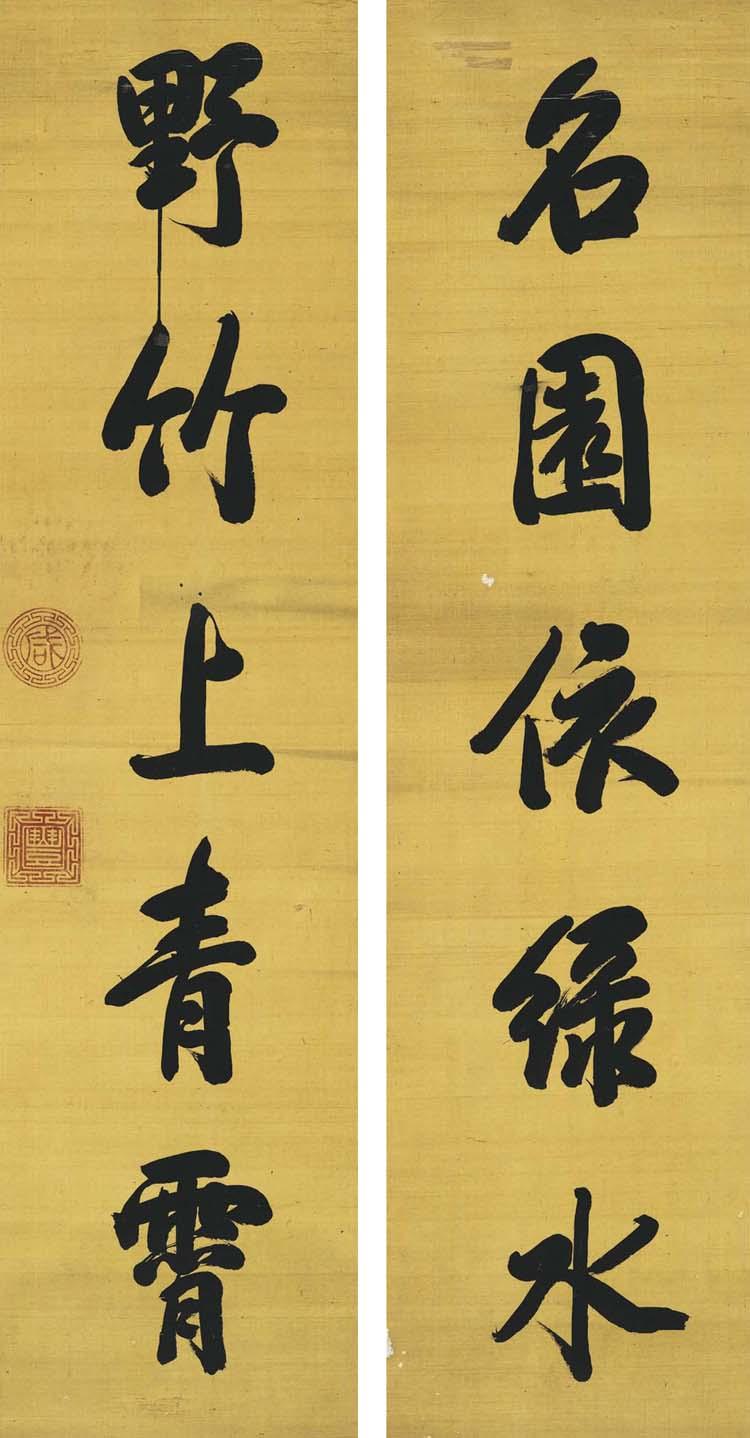 名園依綠水
野竹上青霄
咸
豐